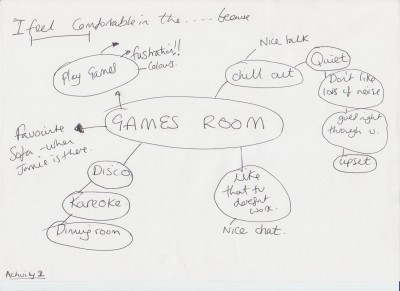 I feel comfortable in the ..... because
Play Games
frustration!!
colours.
Nice talk
chill out
Quiet
Don't like
lots of noise
goes right
through u.
upset
GAMES ROOM
Favourite
Sofa - when
Jamie is there.
Disco
Kareoke
Dining room
Like
that tv
doesn't
work.
Nice chat.
Activity 2